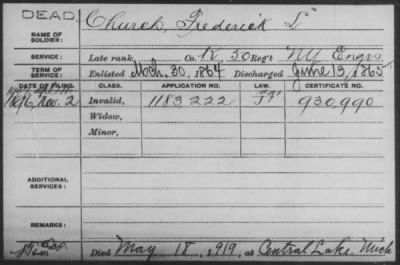 DEAD.
Church, Frederick L
NAME OF SOLDIER:
SERVICE: Late rank Co. K, 50 Reg't NY Engrs
TERM OF SERVICE: Enlisted Mch. 30, 1864 Discharged June 13, 1865
DATE OF FILING. CLASS. APPLICATION NO. LAW. CERTIFICATE NO.
1896, Nov. 2 Invalid, 1183,222 930,990
Widow,
Minor,
ADDITIONAL SERVICES:
REMARKS:
Died May 18, 1919, at Central Lake, Mich